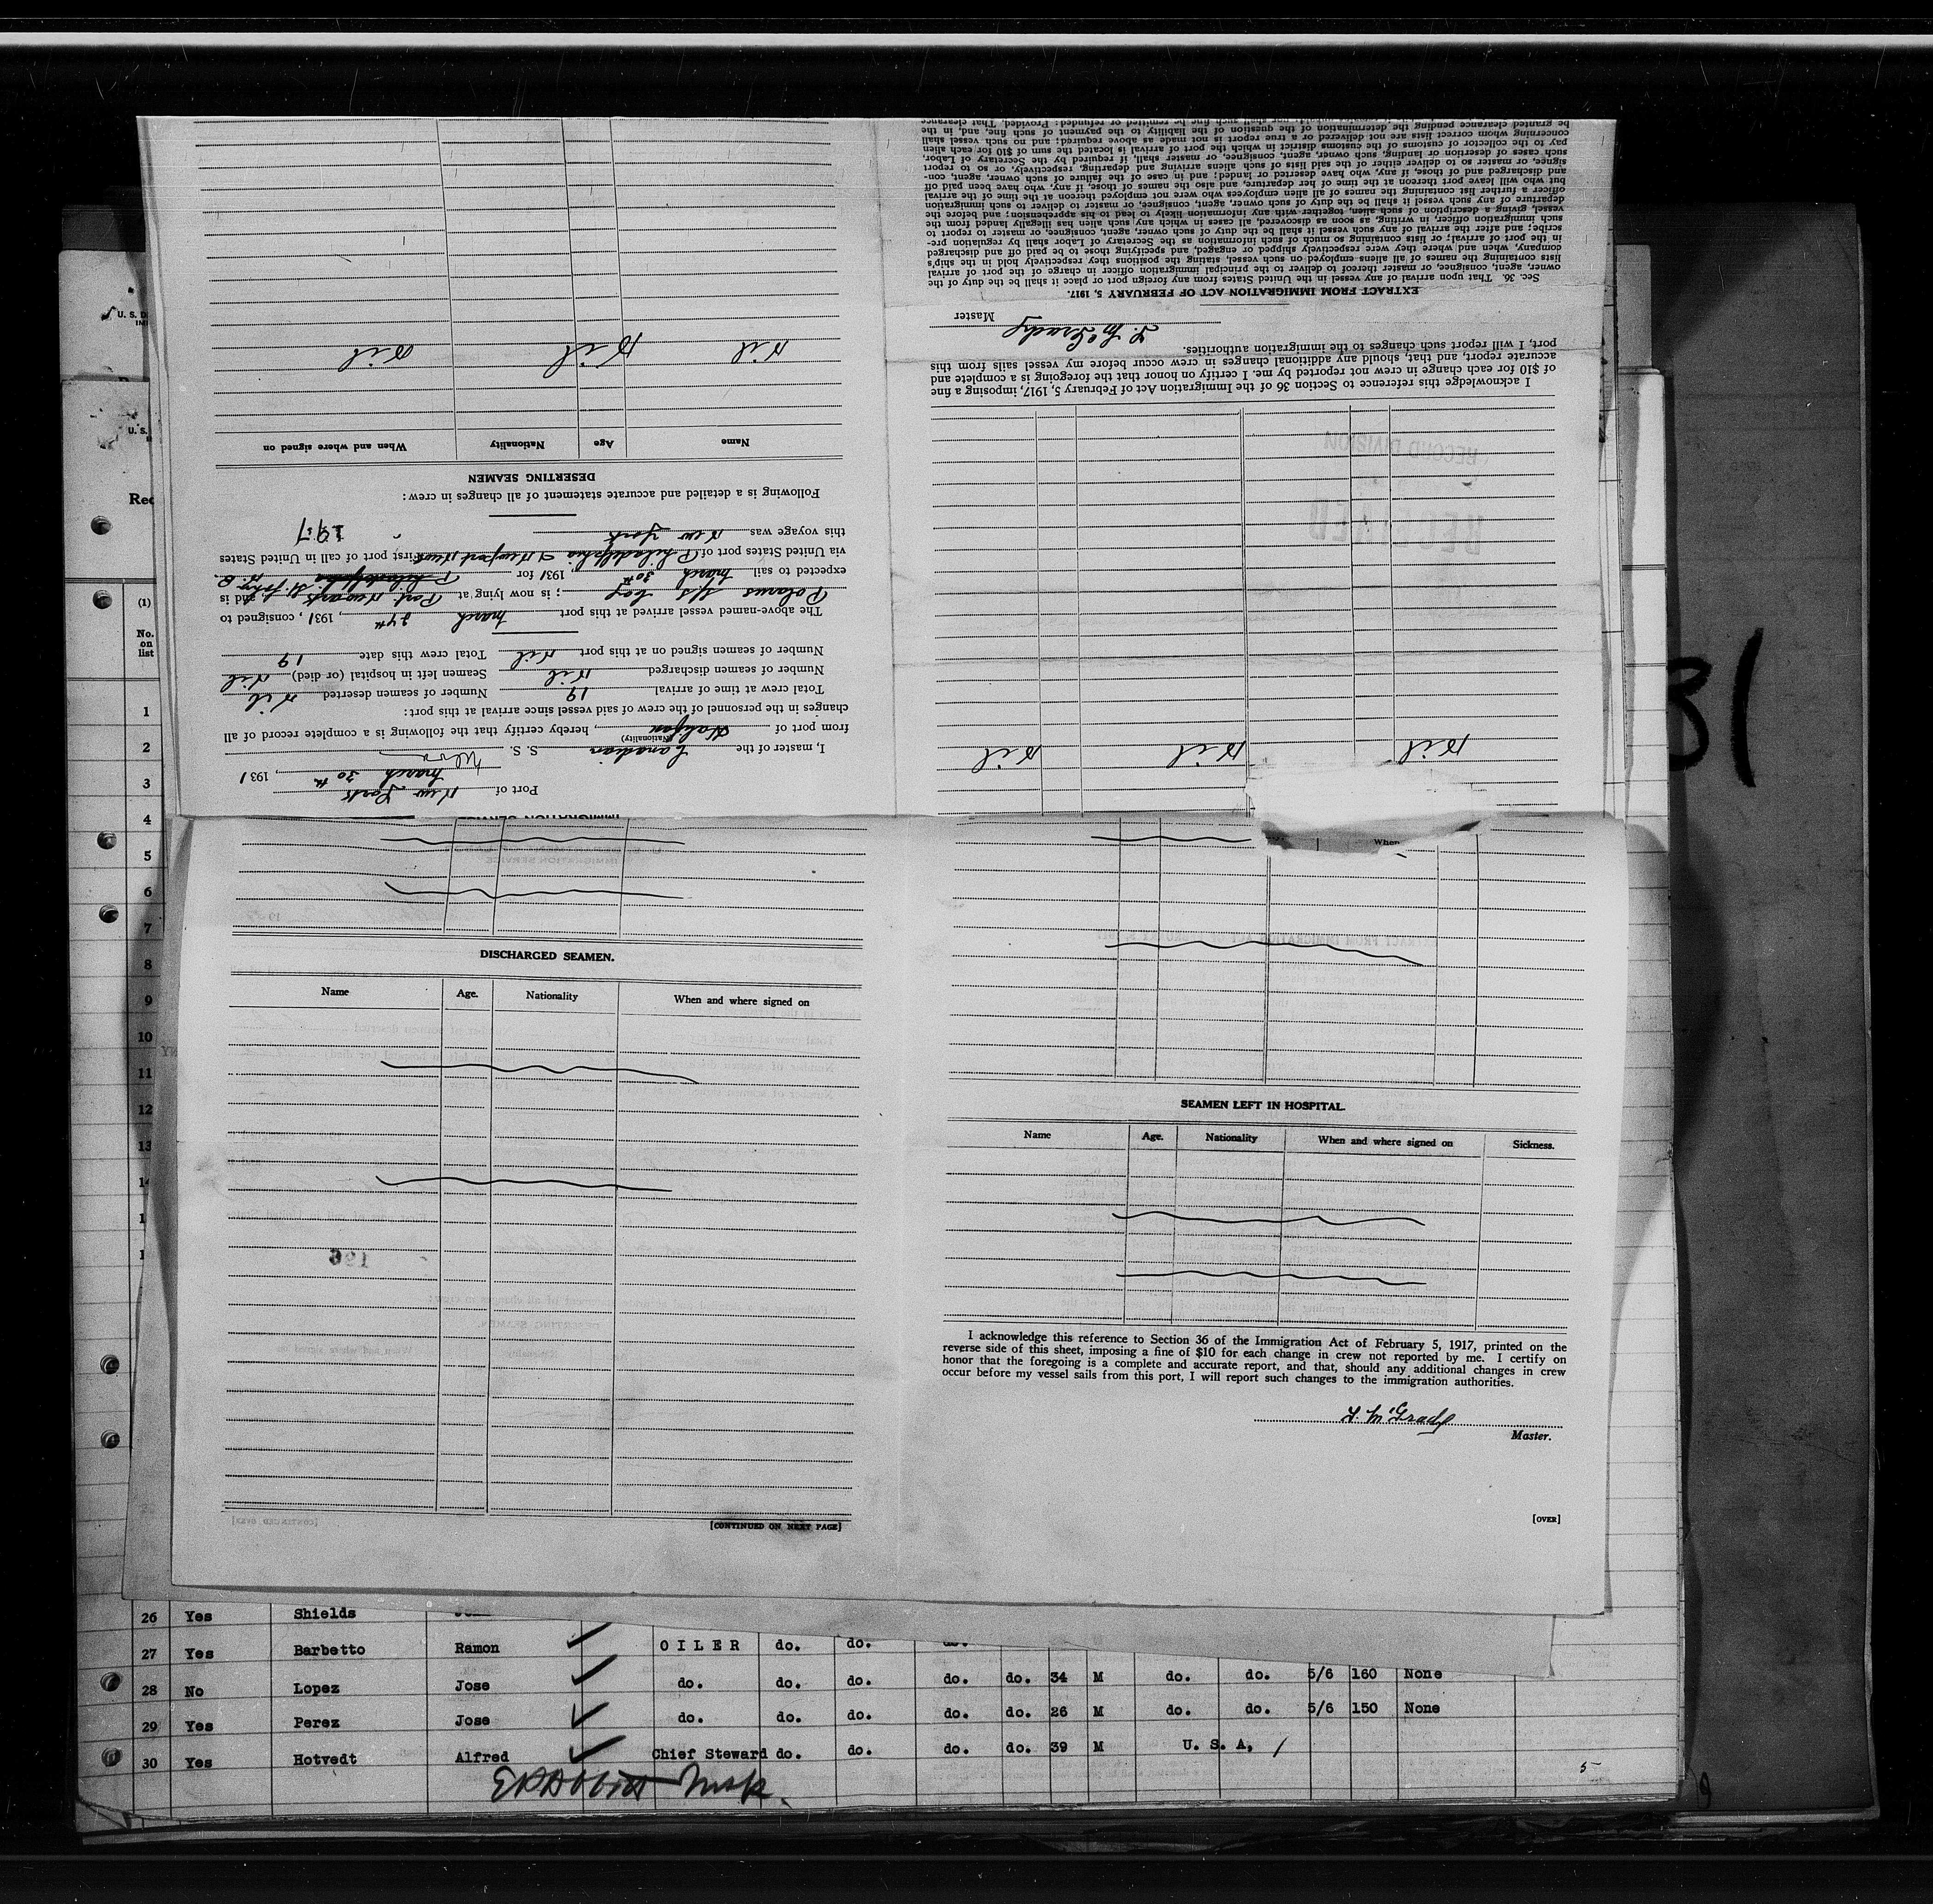 IMMIGRATION SERVICE
Port of New York
March 30th, 1931
I, master of the Canadian S. S.
(Nationality)
from port of Halifax, hereby certify that the following is a complete record of all
changes in the personnel of the crew of said vessel since arrival at this port:
Total crew at time of arrival 19 Number of seamen deserted Nil
Number of seamen discharged Nil Seamen left in hospital (or died) Nil
Number of seamen signed on at this port Nil Total crew this date 19
The above-named vessel arrived at this port March 24th, 1931, consigned to
Polarus S/S Coy; is now lying at Port Newark and is
expected to sail March 30th, 1931 for Philadelphia St. John
via United States port of Philadelphia & Newport News First port of call in United States
this voyage was New York
197
Following is a detailed and accurate statement of all changes in crew:
DESERTING SEAMEN
Name Age Nationality When and where signed on
Nil Nil Nil
Nil Nil Nil
I acknowledge this reference to Section 36 of the Immigration Act of February 5, 1917, imposing a fine
of $10 for each change in crew not reported by me. I certify on honor that the foregoing is a complete and
accurate report, and that, should any additional changes in crew occur before my vessel sails from this
port, I will report such changes to the immigration authorities.
L. McGrady
Master
EXTRACT FROM IMMIGRATION ACT OF FEBRUARY 5, 1917.
Sec. 36. That upon arrival of any vessel in the United States from any foreign port or place it shall be the duty of the
owner, agent, consignee, or master thereof to deliver to the principal immigration officer in charge of the port of arrival
lists containing the names of all aliens employed on such vessel, stating the positions they respectively hold in the ship's
company, when and where they were respectively shipped or engaged, and specifying those to be paid off and discharged
in the port of arrival; or lists containing so much of such information as the Secretary of Labor shall by regulation pre-
scribe; and after the arrival of any such vessel it shall be the duty of such owner, agent, consignee, or master to report to
such immigration officer, in writing, as soon as discovered, all cases in which any such alien has illegally landed from the
vessel, giving a description of such alien, together with any information likely to lead to his apprehension; and before the
departure of any such vessel it shall be the duty of such owner, agent, consignee, or master to deliver to such immigration
officer a further list containing the names of all alien employees who were not employed thereon at the time of the arrival
but who will leave port thereon at the time of her departure, and also the names of those, if any, who have been paid off
and discharged and of those, if any, who have deserted or landed; and in case of the failure of such owner, agent, con-
signee, or master so to deliver either of the said lists of such aliens arriving and departing, respectively, or so to report
such cases of desertion or landing, such owner, agent, consignee, or master shall, if required by the Secretary of Labor,
pay to the collector of customs of the customs district in which the port of arrival is located the sum of $10 for each alien
concerning whom correct lists are not delivered or a true report is not made as above required; and no such vessel shall
be granted clearance pending the determination of the question of the liability to the payment of such fine, and, in the
RECEIVED
RECORD DIVISION
31
U. S.
Rec
(1)
No.
on
list
1
2
3
4
5
6
7
8
9
10
11
12
13
When
DISCHARGED SEAMEN.
Name Age. Nationality When and where signed on
196
[CONTINUED ON NEXT PAGE]
SEAMEN LEFT IN HOSPITAL.
Name Age. Nationality When and where signed on Sickness.
I acknowledge this reference to Section 36 of the Immigration Act of February 5, 1917, printed on the
reverse side of this sheet, imposing a fine of $10 for each change in crew not reported by me. I certify on
honor that the foregoing is a complete and accurate report, and that, should any additional changes in crew
occur before my vessel sails from this port, I will report such changes to the immigration authorities.
L. McGrady
Master.
[OVER]
26 Yes Shields
27 Yes Barbetto Ramon OILER do. do. do.
28 No Lopez Jose do. do. do. do. do. 34 M do. do. 5/6 160 None
29 Yes Perez Jose do. do. do. do. do. 26 M do. do. 5/6 150 None
30 Yes Hotvedt Alfred Chief Steward do. do. do. do. 39 M U. S. A.
5